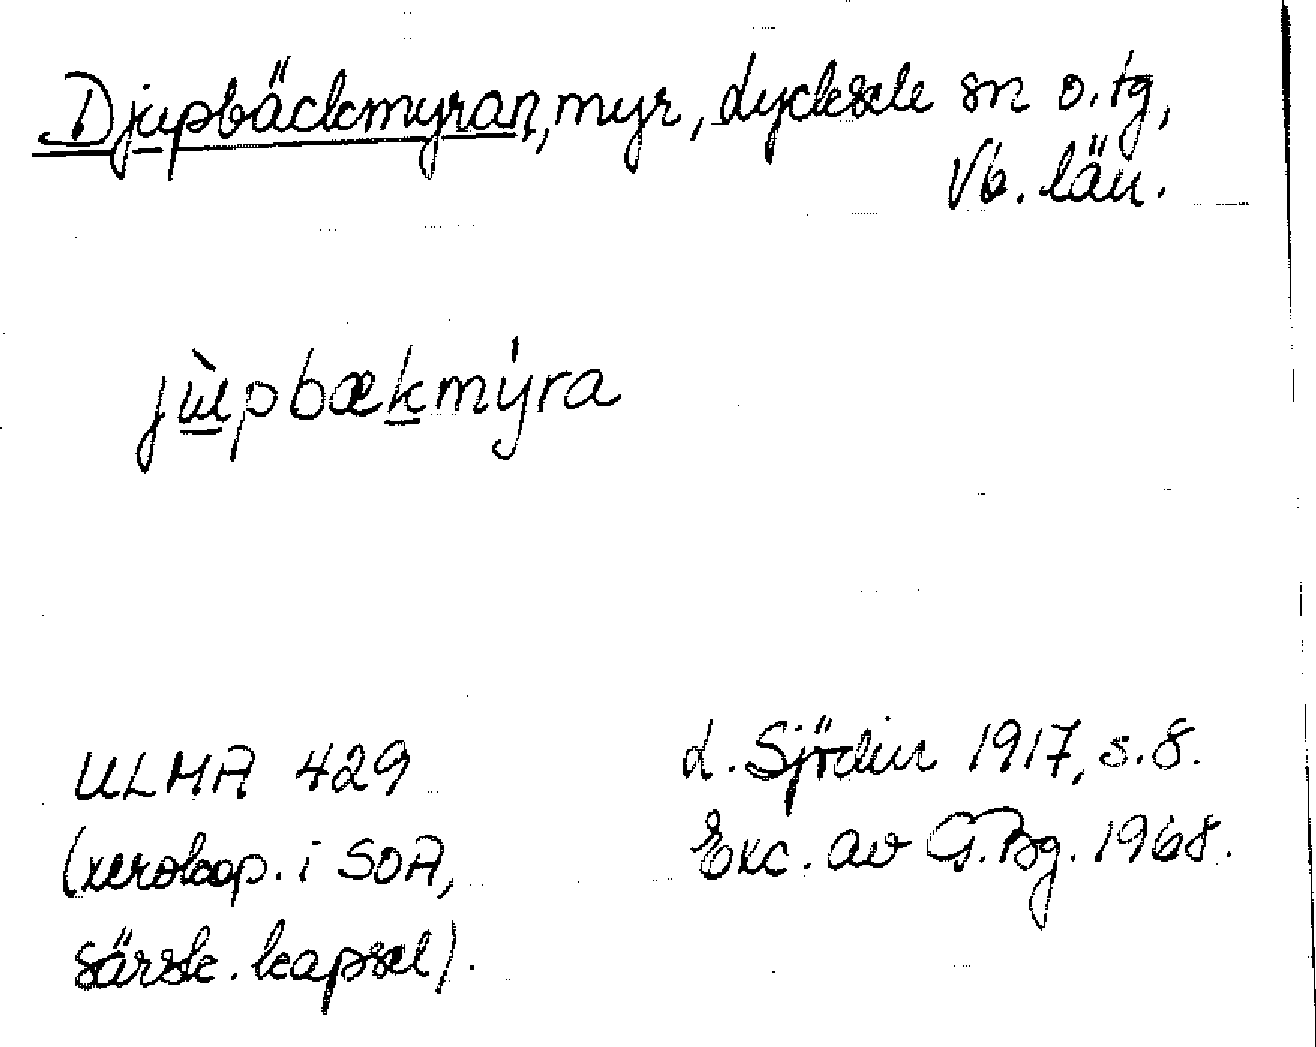 Djupbäckmyran, myr, Lycksele sn o. tg,
Vb. län.
jùpbækmýra
ULMA 429
(xerokop. i SOA,
särsk. kapsel).
L. Sjödin 1917, s. 8.
Exc. av G. Bg. 1968.